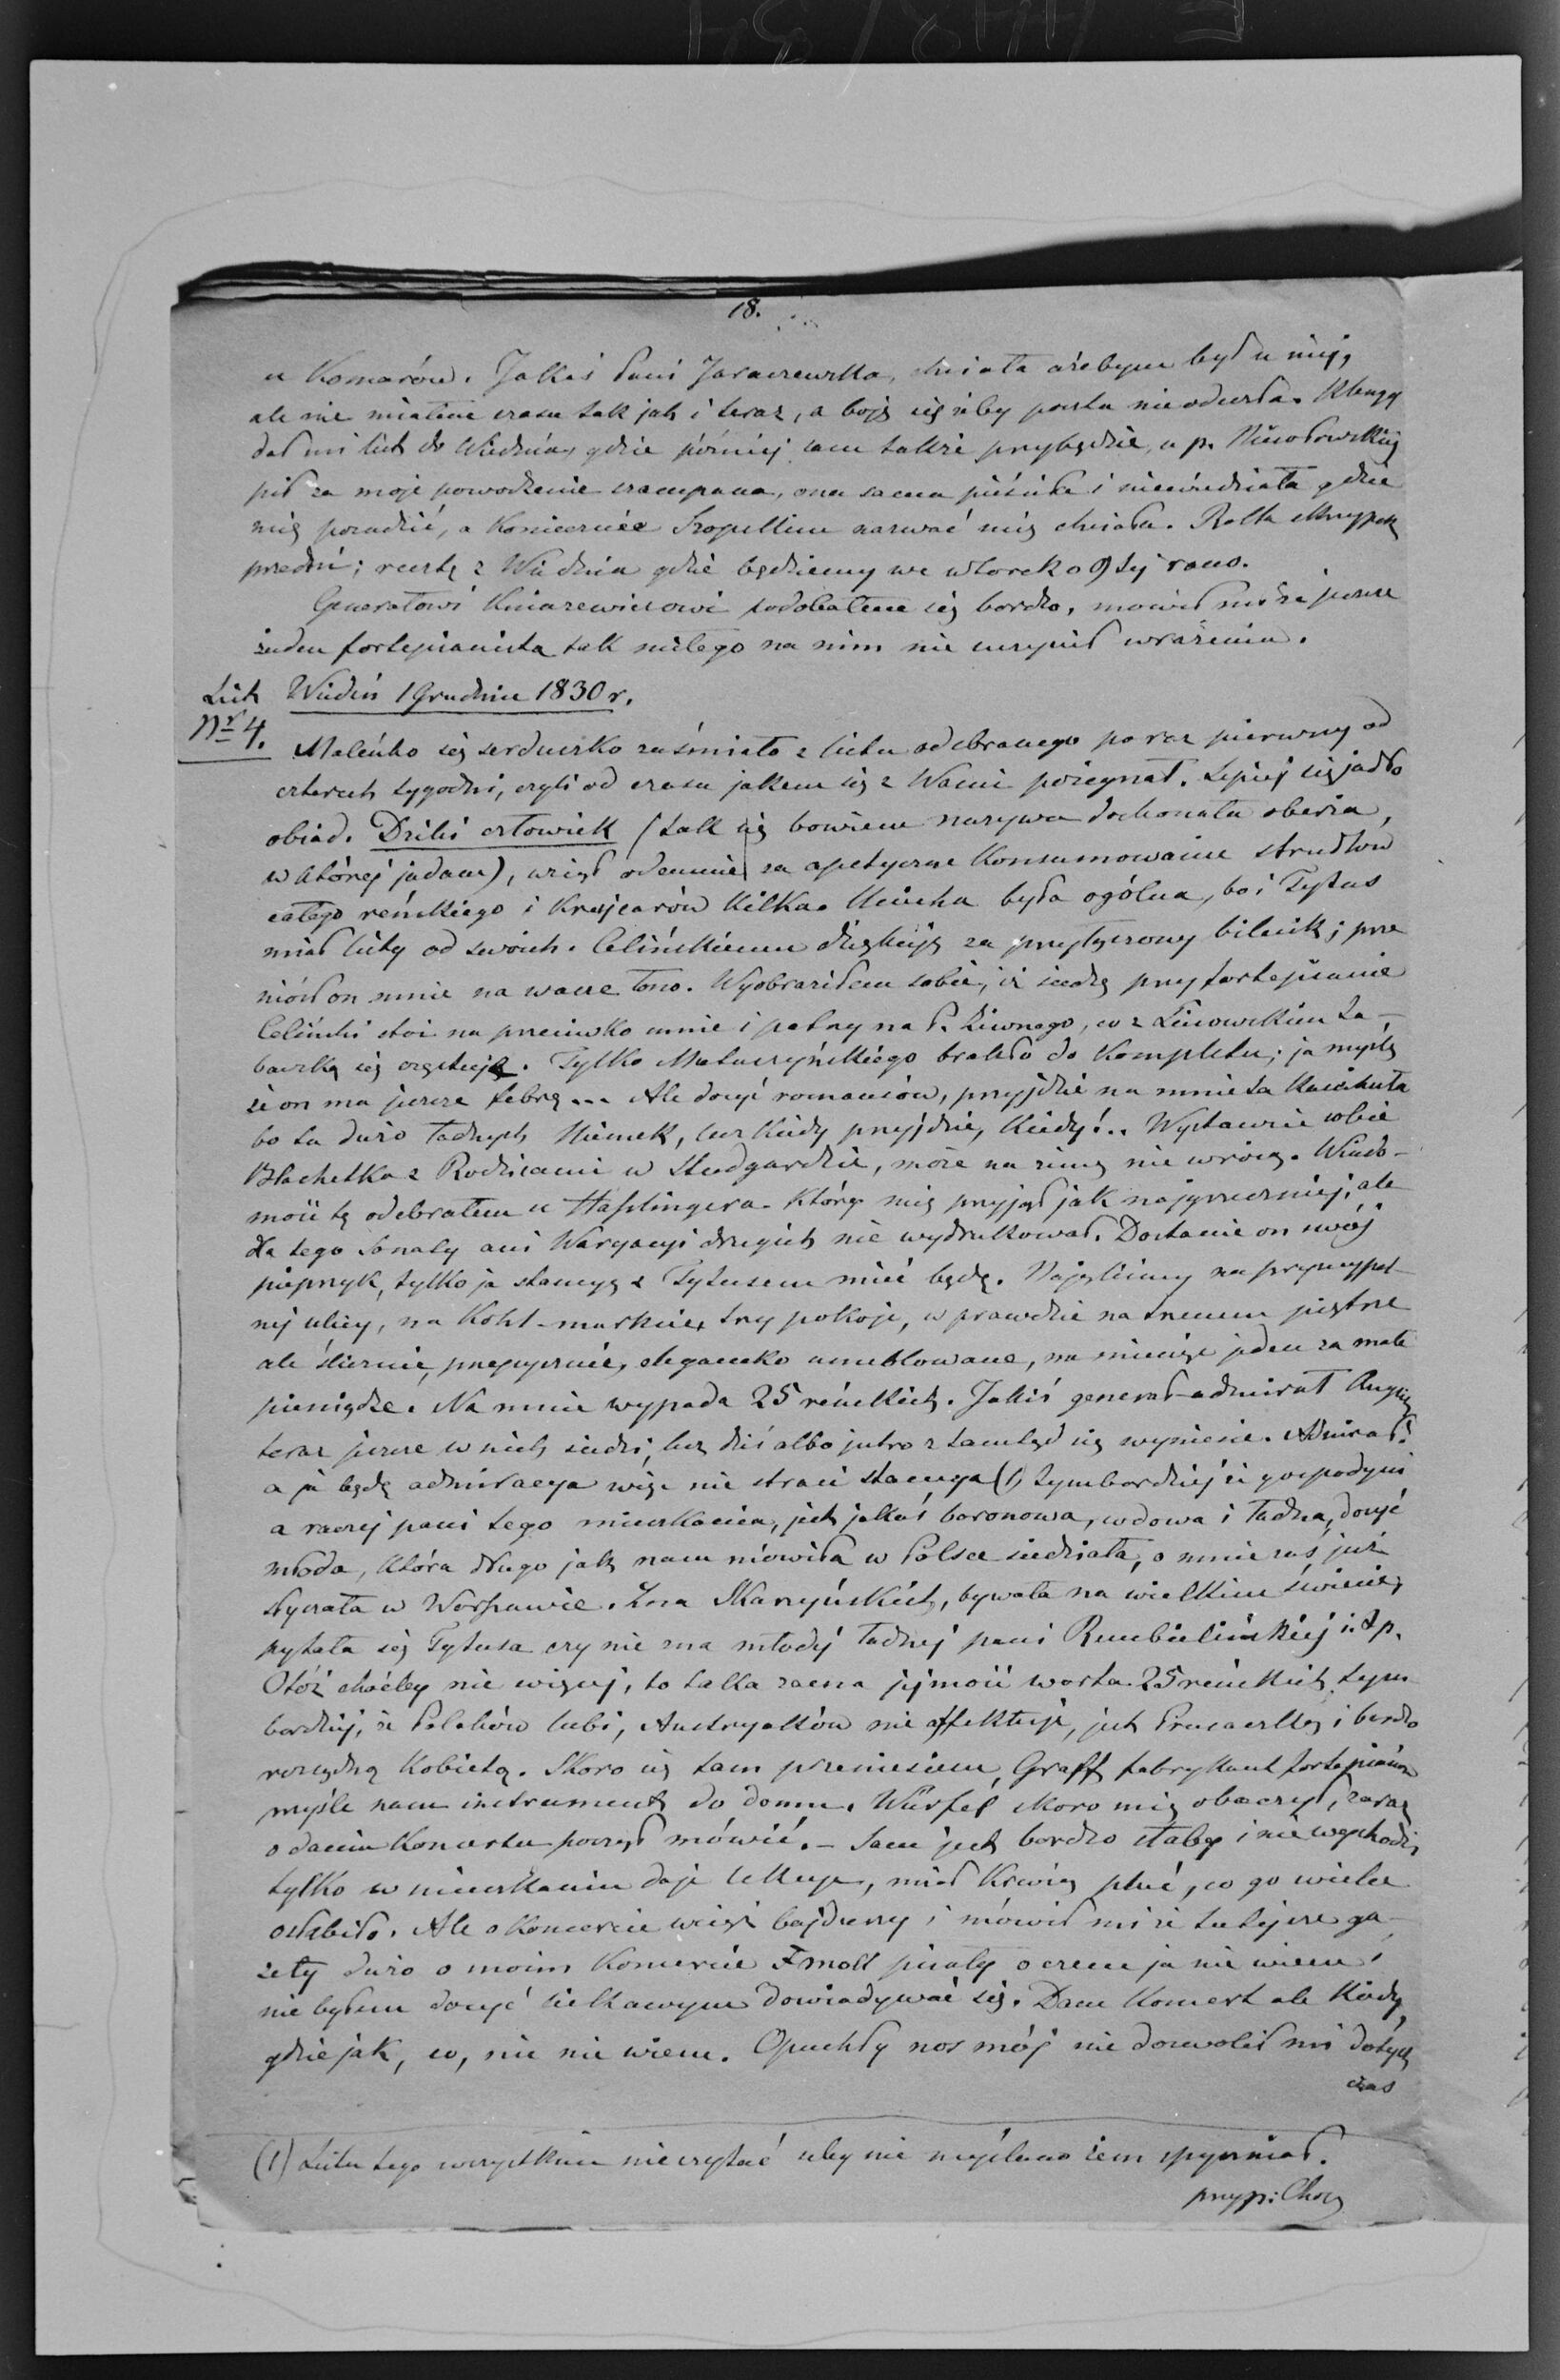 18.
u Komarów. Jakaś Pani Jaraczewska, chciała ażebym był u niej,
ale nie miałem czasu tak jak i teraz, a boję się żeby poszta nie odeszła. Klengg
dał mi list do Wiednia, gdzie później sam także przybędzie, u p. Niesołowskiej
pił za moje powodzenie szampana, ona sama pieściła i niewiedziała gdzie
mię posadzić, a koniecznie Szopskim nazwać mię chciała. Rolla skrzypek
przedni; resztę z Wiednia gdzie będziemy we wtorek o 9tej rano.
Generałowi Kniaziewiczowi podobałem się bardzo, mówił mi że jeszcze
żaden fortepianista tak miłego na nim nie uczynił wrażenia.
List Wiedeń 1 Grudnia 1830 r.
Nr 4. Maleńko się serduszko zaśmiało z listu odebranego po raz pierwszy od
czterech tygodni, czyli od czasu jakem się z Wami pożegnał. Lepiej się jadło
obiad. Dziki człowiek (tak się bowiem nazywa doskonała oberża,
w której jadam), wziął odemnie za apetyczne konsumowanie strudlów
całego reńskiego i krajcarów kilka. Uciecha była ogólna, bo i Tytus
miał listy od swoich. Celińskiemu dziękuję za przyłączony bilecik; prze
niósł on mnie na wasze łono. Wyobraziłem sobie, iż siedzę przy fortepianie
Celiński stoi na przeciwko mnie i patrzy na P. Żiwnego, co z Linowskim ta-
baczką się częstuje. Tylko Matuszyńskiego brakło do kompletu; ja myślę
że on ma jeszcze febrę... Ale dosyć romansów, przyjdzie na mnie ta
bo tu dużo ładnych Niemek, lecz kiedy przyjdzie, kiedy!.. Wystawcie sobie
Blachetka z Rodzicami w Studgardzie, może na zimę nie wrócą. Wiado-
mość tę odebrałem u Haslingera. który mię przyjął jak najgrzeczniej, ale
dla tego Sonaty ani Waryacyi drugich nie wydrukował. Dostanie on swój
pieprzyk, tylko ja stancyę z Tytusem mieć będę. Najęliśmy na pryncypal-
nej ulicy, na Kohl-markcie, trzy pokoje, wprawdzie na trzeciem piętrze
ale ślicznie, przepysznie, elegancko umeblowane, na miesiąc jeden za małe
pieniądze. Na mnie wypada 25 reńskich. Jakiś generał-admirał Anglik
teraz jeszcze w nich siedzi, lecz dziś albo jutro z tamtąd się wyniesie. Admirał!
a ja będę admiracya więc nie straci stancya (1) tymbardziej że gospodyni
a raczej pani tego mieszkania, jest jakaś baronowa, wdowa i ładna, dosyć
młoda, która długo jak nam mówiła w Polsce siedziała, o mnie zaś już
słyszała w Warszawie. Zna Skarzyńskich, bywała na wielkim świecie,
pytała się Tytusa czy nie zna młodej ładnej pani Rembielińskiej i. t. p.
Otóż choćby nie więcej, to taka zacna jejmość warta 25 reńskich, tym
bardziej, że Polaków lubi, Austryaków nie affektuje, jest Prusaczką i bardzo
rozsądną kobietą. Skoro się tam przeniesiem, Graff fabrykant fortepianów
myśle nam instrument do domu. Würfel skoro mię obaczył, zaraz
o daniu Koncertu począł mówić. – Sam jest bardzo słaby i nie wychodzi,
tylko w mieszkaniu daje lekcye, miał krwią pluć, co go wielce
osłabiło. Ale o koncercie wciąż bajdurzy i mówił mi że tutejsze ga-
zety dużo o moim Koncercie F moll pisały o czem ja nie wiem i
nie byłem dosyć ciekawym dowiadywać się. Dam Koncert ale kiedy,
gdzie jak, co, nic nie wiem. Opuchły nos mój nie dozwolił mi dotych
czas
(1) Listu tego wszystkim nie czytać żeby nie myślano żem spyszniał.
przyp: Chop